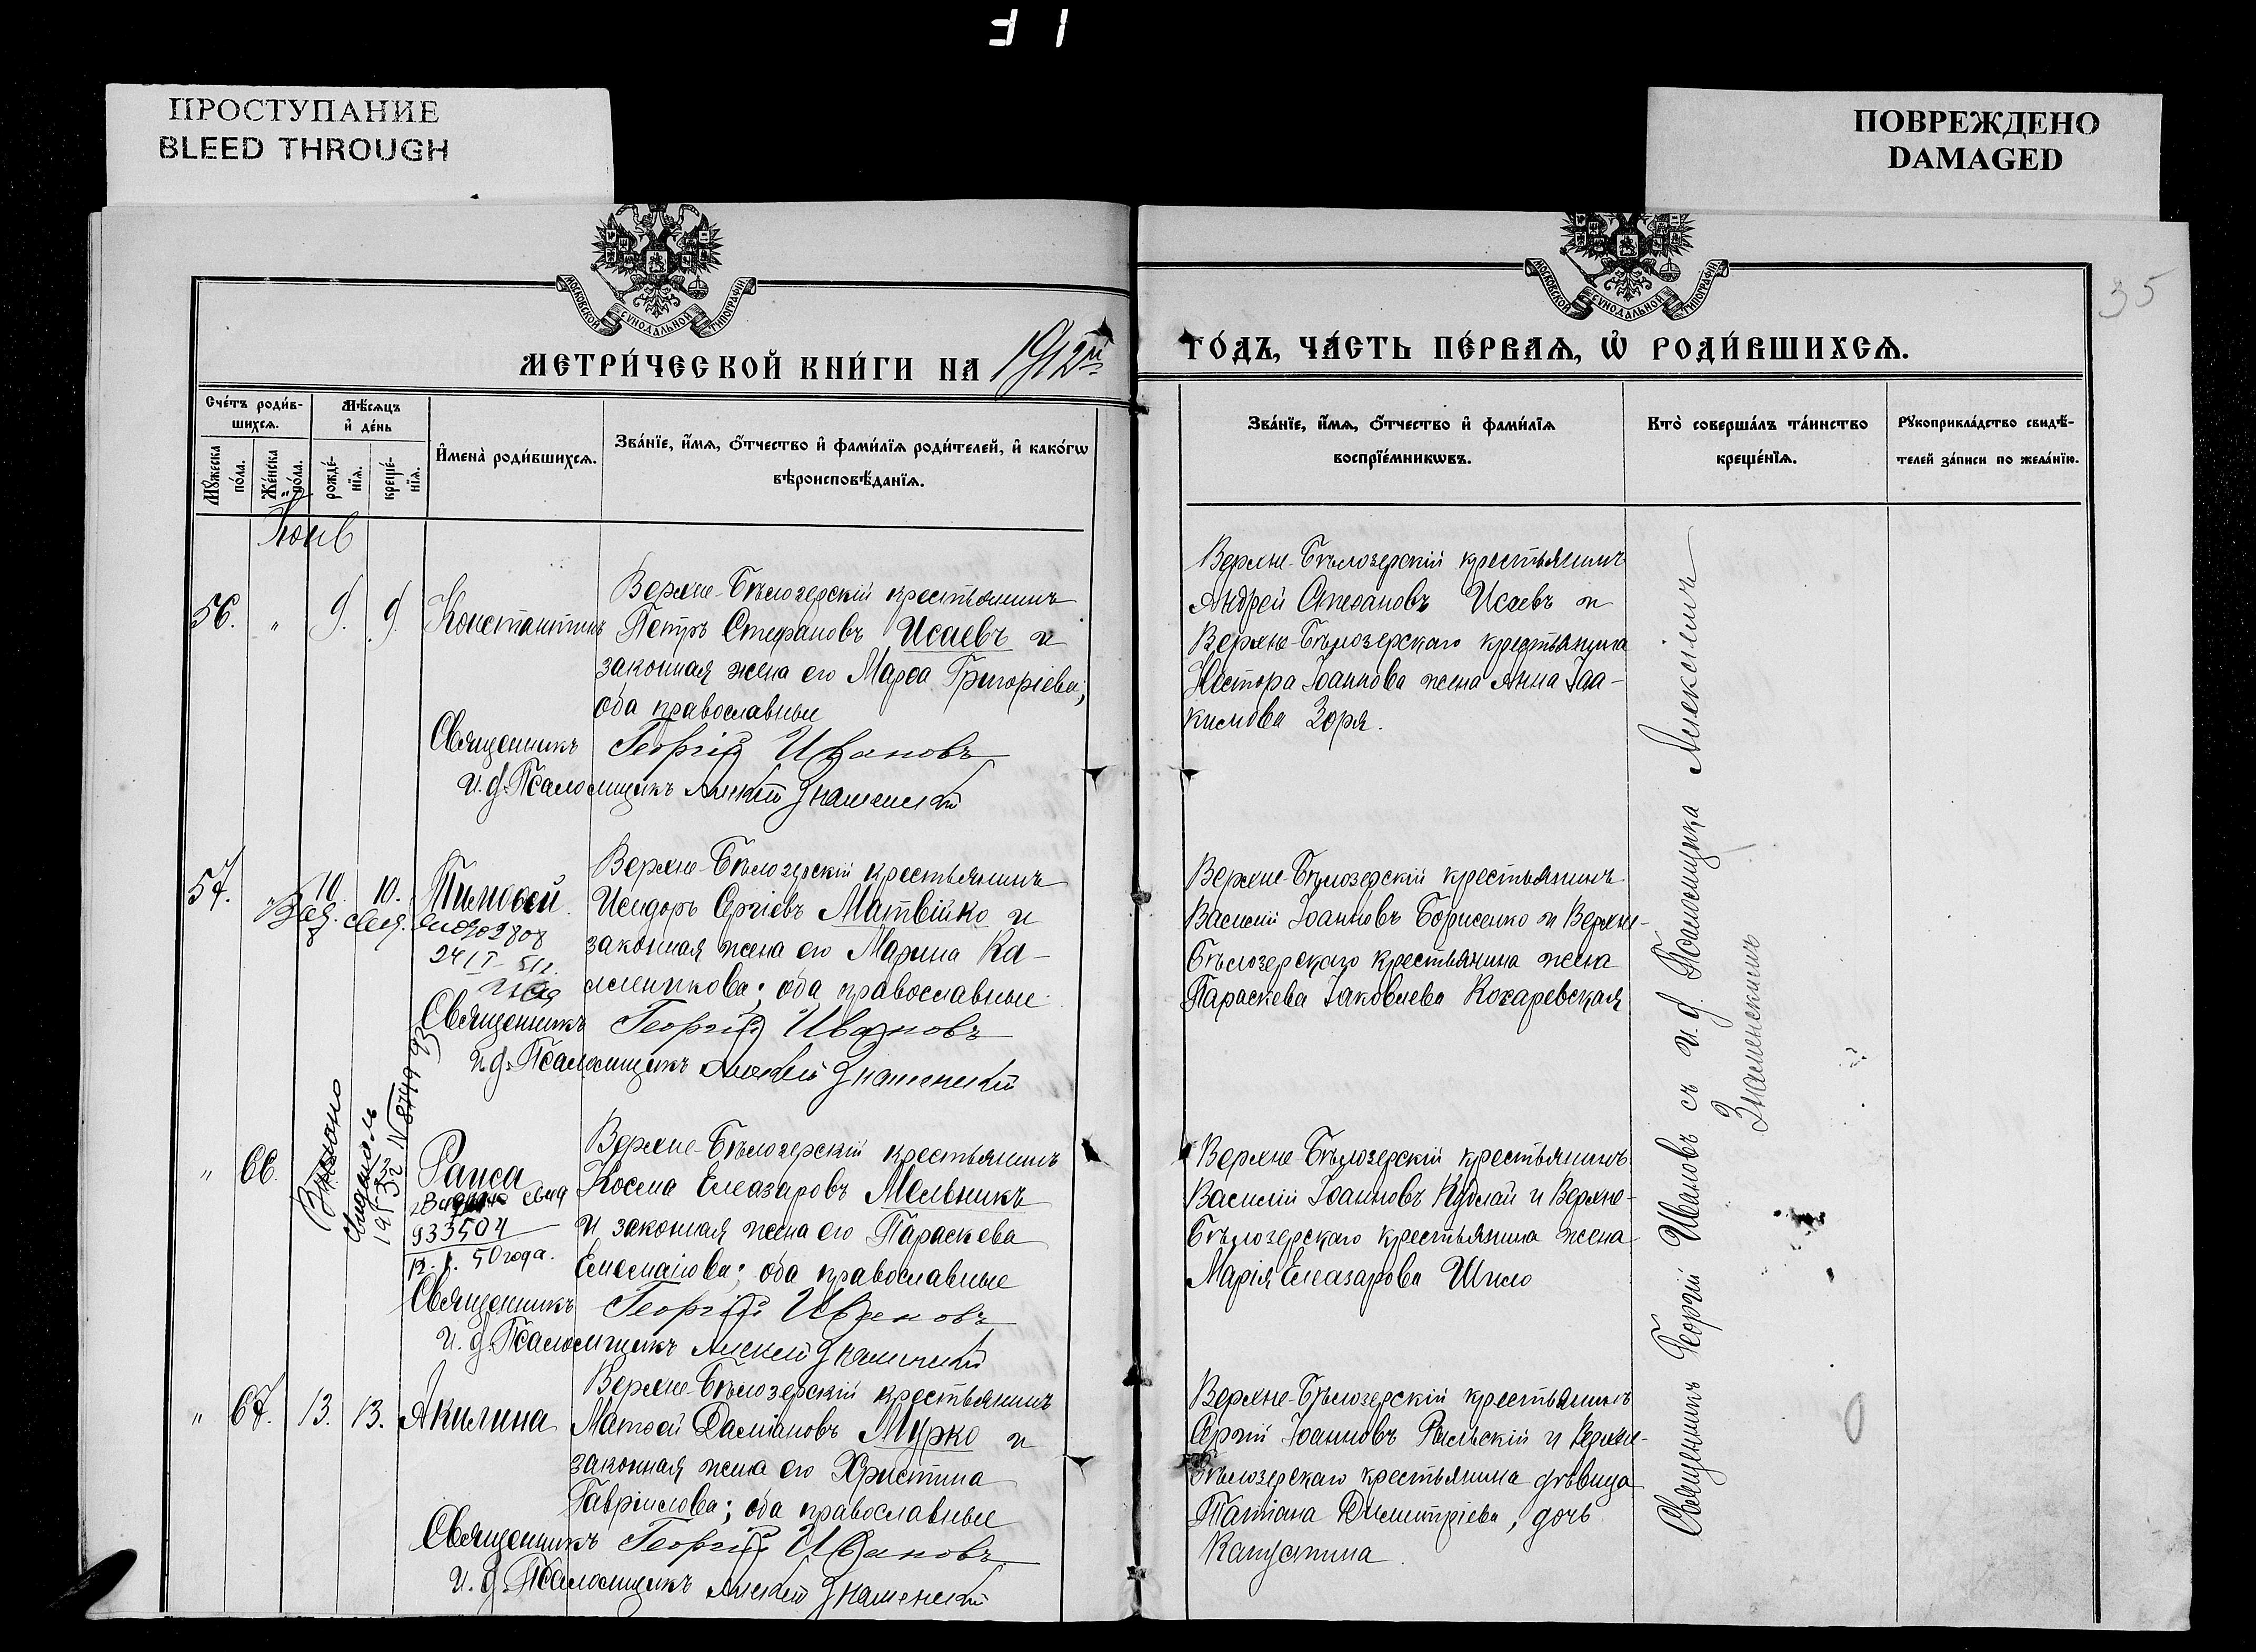 ПРОСТУПАНИЕ
BLEED THROUGH
ПОВРЕЖДЕНО
DAMAGED
35
МОСКОВСКОЙ СѴНОДАЛЬНОЙ ТИПОГРАФІИ
МОСКОВСКОЙ СѴНОДАЛЬНОЙ ТИПОГРАФІИ
МЕТРИ́ЧЕСКОЙ КНИ́ГИ НА 1912й
ГО́ДЪ, ЧА́СТЬ ПЕ́РВАѦ, Ѡ҆ РОДИ́ВШИХСѦ.
Сче́тъ роди́в-
шихсѧ.
Мꙋ́жеска
по́ла.
Же́нска
по́ла.
Мѣ́сѧцъ
и҆ де́нь
рожде́-
нїѧ.
креще́-
нїѧ.
И҆мена̀ роди́вшихсѧ.
Зва́нїе, и҆́мѧ, ѻ҆́тчество и҆ фами́лїѧ роди́телей, и҆ како́гѡ
вѣроисповѣ́данїѧ.
Зва́нїе, и҆́мѧ, ѻ҆́тчество и҆ фами́лїѧ
воспрїе́мникѡвъ.
Кто̀ соверша́лъ та́инство
креще́нїѧ.
Рꙋкоприкла́дство свидѣ́-
телей за́писи по жела́нїю.
56. " 9. 9. Константинъ
Верхне-Бѣлозерскій крестьянинъ
Петръ Стефановъ Исаевъ и
законная жена его Марѳа Григоріева;
оба православные
Священникъ Георгій Ивановъ
и. д. Псаломщикъ Алексѣй Знаменскій
Верхне-Бѣлозерскій крестьянинъ
Андрей Стефановъ Исаевъ и
Верхне-Бѣлозерскаго крестьянина
Нестора Іоаннова жена Анна Іоа-
кимова Зоря.
57. " 10. 10. Тимоѳей
24/I
Верхне-Бѣлозерскій крестьянинъ
Исидоръ Сергіевъ Матвійко и
законная жена его Марина Ка-
оба православные
Священникъ Георгій Ивановъ
и. д. Псаломщикъ Алексѣй Знаменскій
Верхне-Бѣлозерскій крестьянинъ
Василій Іоанновъ Борисенко и Верхне-
Бѣлозерскаго крестьянина жена
Параскева Іаковлева Кохаревская
" 66. Раиса
933504
50 года.
Верхне-Бѣлозерскій крестьянинъ
Косма Елеазаровъ Мельникъ
и законная жена его Параскева
оба православные
Священникъ Георгій Ивановъ
и. д. Псаломщикъ Алексѣй Знаменскій
Верхне-Бѣлозерскій крестьянинъ
Василій Іоанновъ Кублай и Верхне-
Бѣлозерскаго крестьянина жена
Марія Елеазарова Шило
" 67. 13. 13. Акилина
Верхне-Бѣлозерскій крестьянинъ
Матѳей Даміановъ Мурко и
законная жена его Христина
Гавріилова; оба православные
Священникъ Георгій Ивановъ
и. д. Псаломщикъ Алексѣй Знаменскій
Верхне-Бѣлозерскій крестьянинъ
Сергій Іоанновъ Рыльскій и Верхне-
Бѣлозерскаго крестьянина дѣвица
Татіана Димитріева, дочь
Капустина
Священникъ Георгій Ивановъ съ и. д. Псаломщика Алексіемъ
Знаменскимъ